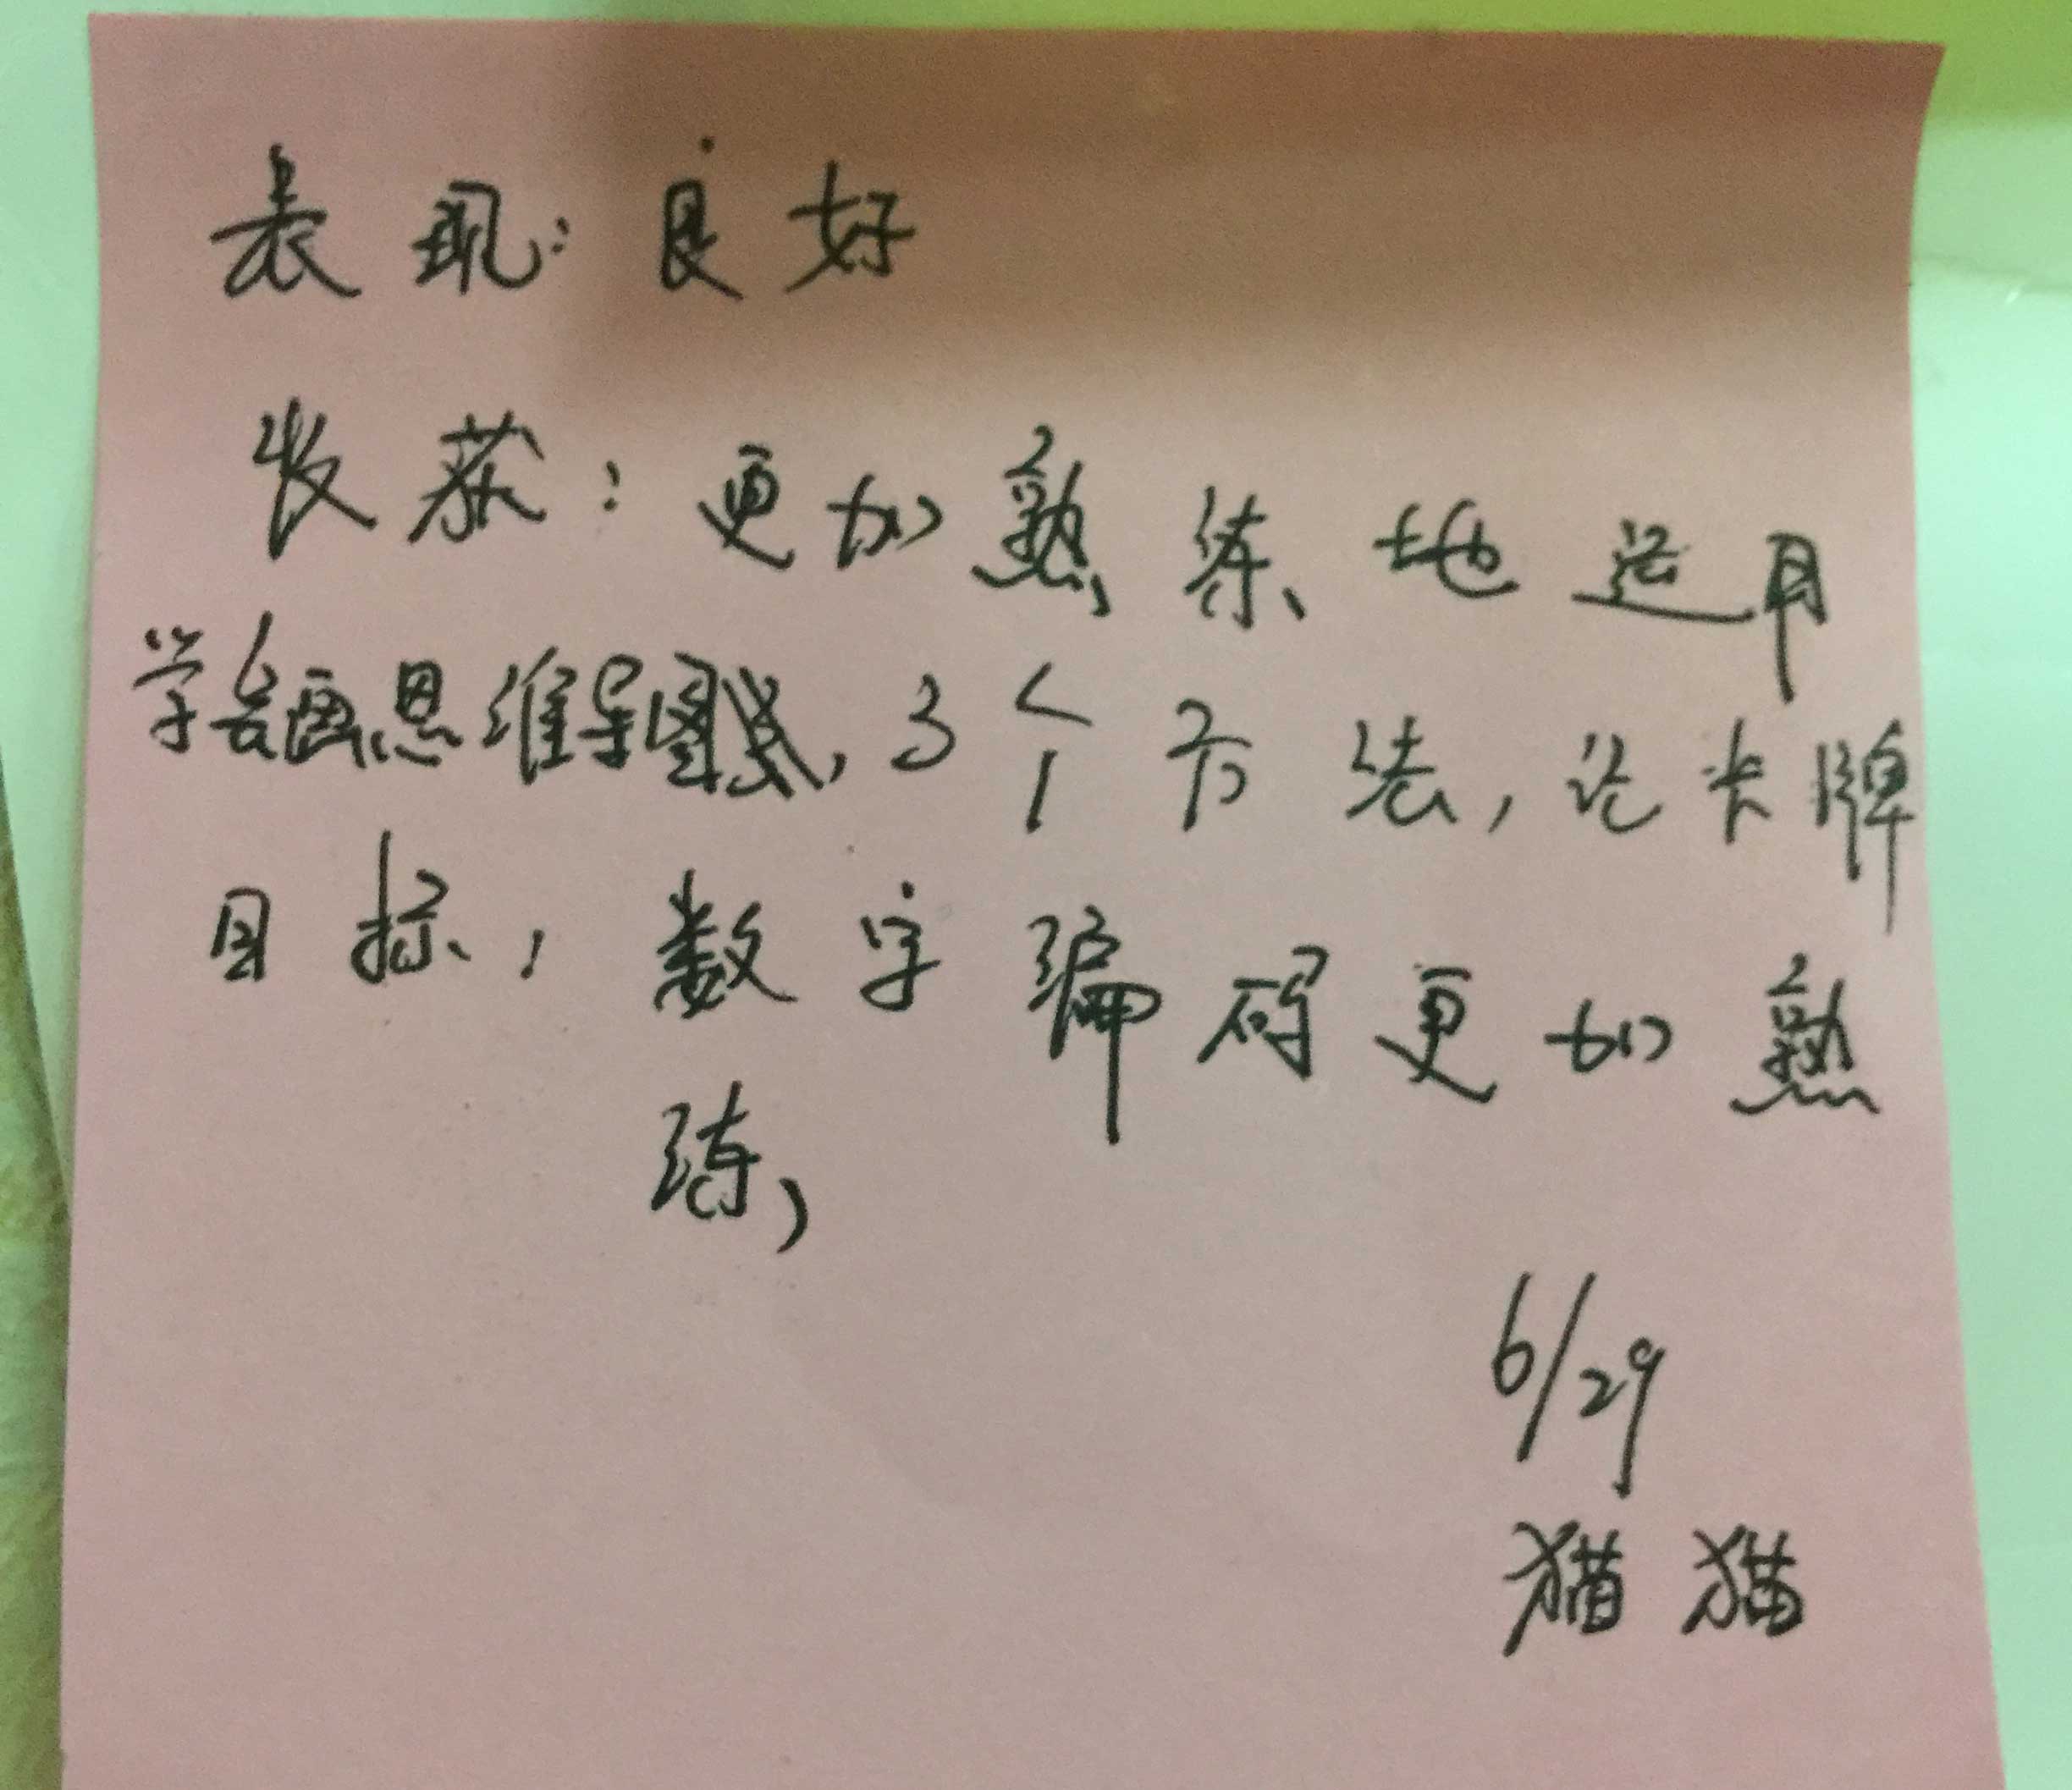 表现：良好
收获：更加熟练地运用
学会画思维导图，3个方法，论卡牌
目标，数字编码更加熟
练，
6/29
猫猫